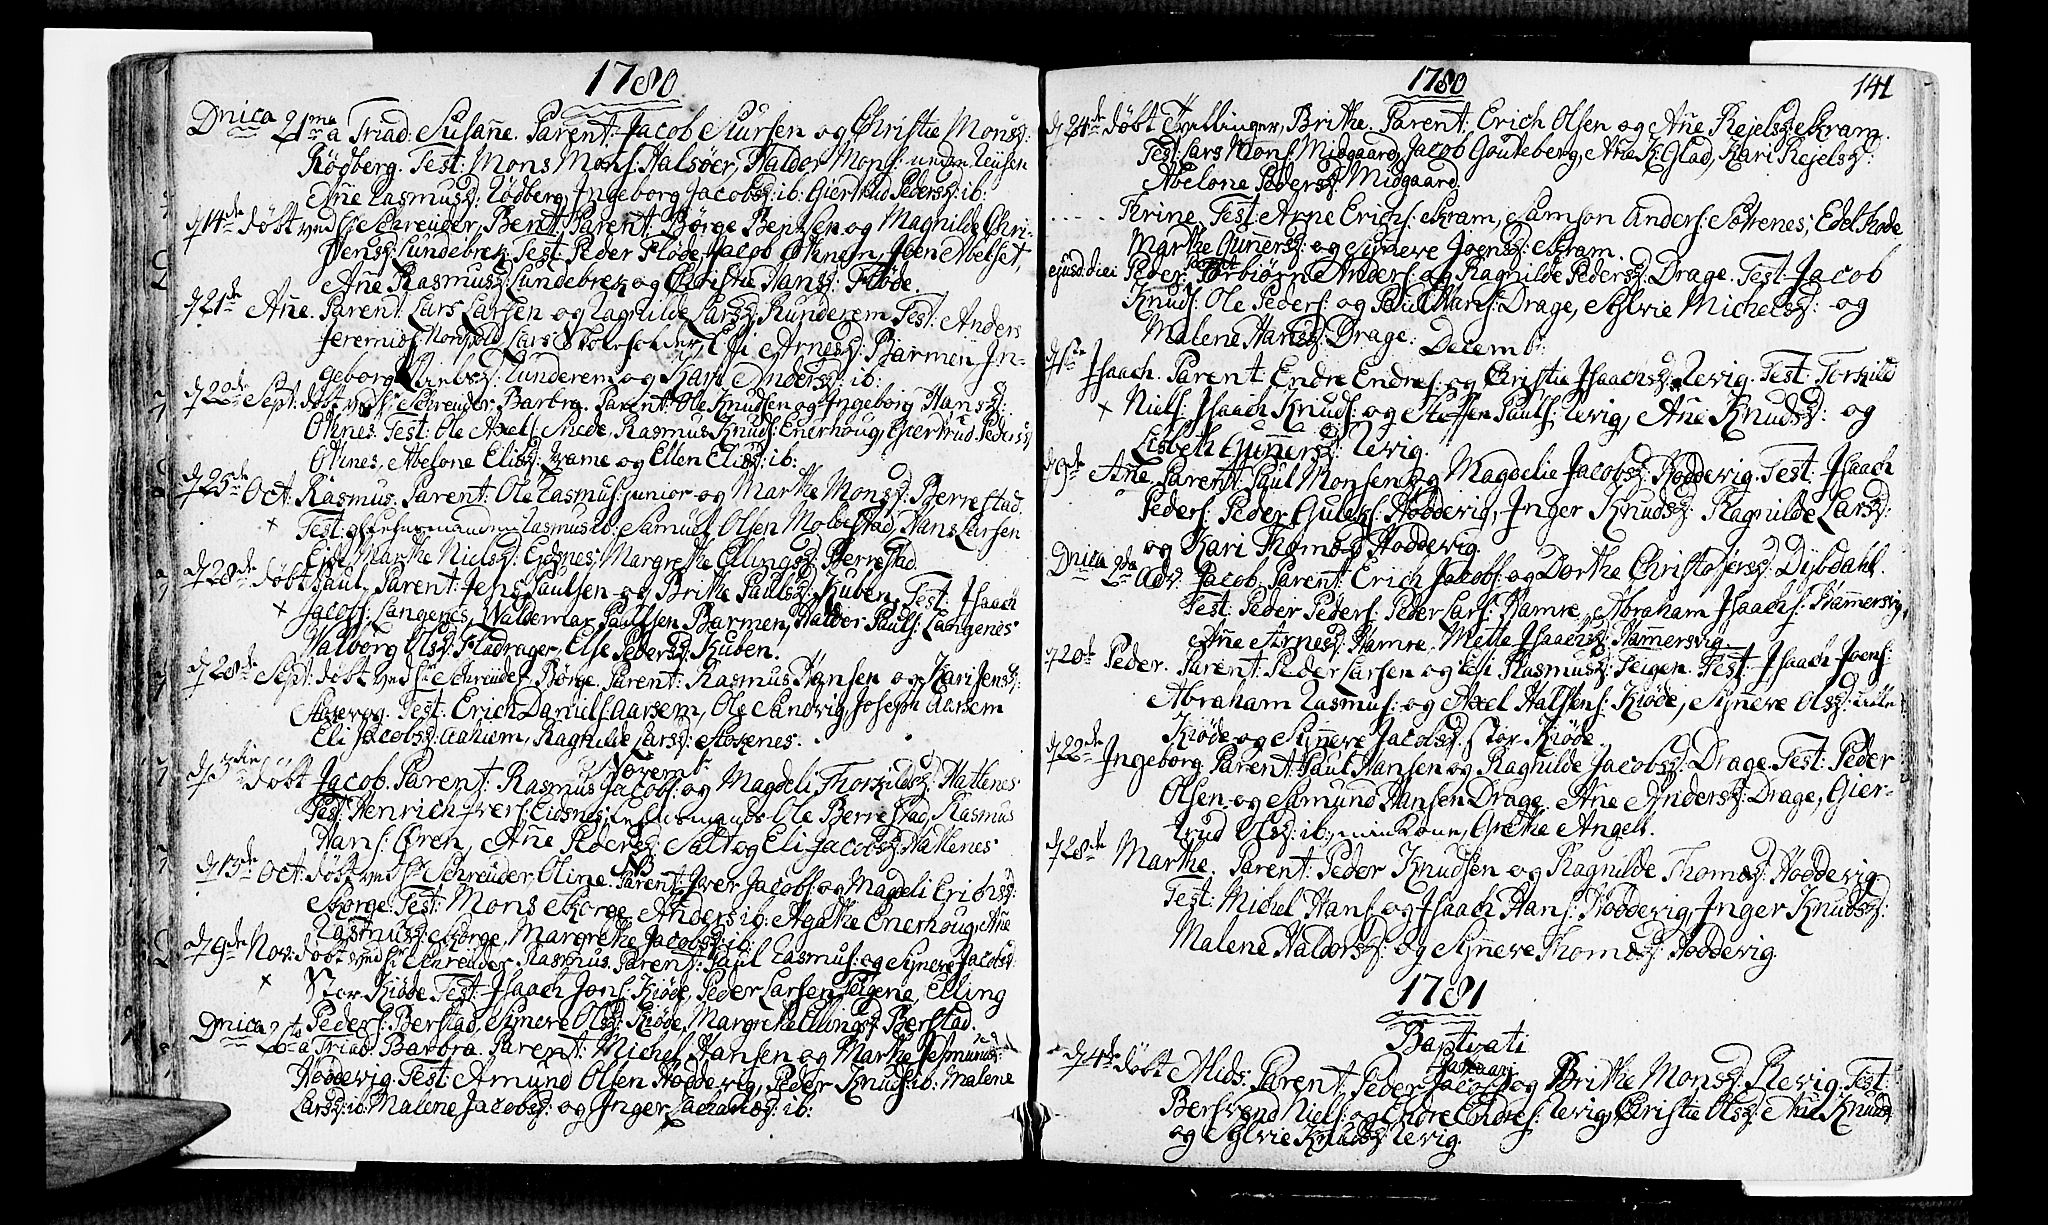 1780
Dnica 21ma a Triad: Susañe. Parent: Jacob Siursen og Christie Monsd:
Rødberg. Test: Mons Mons: Halsøer, Haldor Mons:
Añe Rasmusd: Rødberg, Ingeborg Jacobsd: ib: Giertrud Pedersd: ib:
d 14de døbt ved Hr Schreuder, Bent, Parent: Børge Bentsen og Magnilde Chri-
stensd: Lundebrek, Test: Peder Fløde, Jacob Othnem, Joen Abelset,
Añe Rasmusd: Lundebrek og Christie Hansd: Fløde.
d 21de Añe. Parent: Lars Larsen og Ragnilde Larsd: Runderem Test: Anders
Jeremiss: Lars Skoleholder, Eli Arnesd: Barmen In-
geborg Runderem og Kari Andersd: ib:
d 22de Sept: døbt ved Hr Schreuder, Barbra. Parent: Ole Knudsen og Ingeborg Hansd:
Othnes. Test: Ole Axels: Rasmus Knuds: Enerhoug, Giertrud Pedersd:
Othnes, Abelone Elisd: Drame og Ellen Elisd: ib:
d 25de Oct: Rasmus. Parent: Ole Rasmus: junior og Marthe Monsd: Berrestad.
× Test: Lensmanden Rasmus ib: Samuel Olsen Moldestad, Hans Larsen
Eide, Marthe Nielsd: Eidsnes, Margrethe Ellingsd: Berrestad.
d 28de døbt Paul, Parent: Jens Paulsen og Brithe Paulsd: Kuben, Test: Isaach
× Jacobs: Langenes, Waldemar Paulsen Barmen, Haldor Pauls: Langenes
Walborg Olsd: Fladrager, Else Pedersd: Kuben.
d 28de Sept: døbt ved Hr Schreuder Børge. Parent: Rasmus Hansen og Kari Jensd:
Test: Erich Daniels: Aarsem, Ole Sandvig, Joseph Aarsem
Eli Jacobsd: Ragnilde Larsd: Stokenes.
Novemb:
døbt Jacob. Parent: Rasmus Jacobs: og Magdeli Thorkildsd: Hattenes
Test: Henrich Ivers: Eidsnes, Lensmands: Ole Berrestad, Rasmus
Hans: Øren, Añe Pedersd: Salt og Eli Jacobsd: Hattenes
NB
d 13de Oct: døbt ved Hr Schreuder, Oline. Parent: Iver Jacobs: og Magdeli Erichsd:
Skorge. Test: Mons Skorge, Anders ib: Agathe Enerhoug, Añe
Rasmusd: Skorge, Margrethe Jacobsd: ib:
d 9de Nov: døbt ved Hr Schreuder Rasmus. Parent: Paul Rasmus: og Synneve Jacobsd:
× Stor Kiøde Test: Isaach Jons: Kiøde, Peder Larsen Teigene, Elling
Peders: Berstad, Synneve Olsd: Kiøde, Margrethe Ellingsd: Berstad.
Dnica 26ta a Triad: Barbra. Parent: Michel Hansen og Marthe
Hoddevig. Test: Amund Olsen Hoddevig, Peder Knuds: ib: Malene
Larsd: ib: Malene Jacobsd: og Inger Zachariæd: ib:
1780
141
d 24de døbt Tvillinger, Brithe. Parent: Erich Olsen og Añe Rejelsd: Skram.
Test: Lars Mons: Midgaard, Jacob Gouteberg, Añe K: Glad, Kari Rejelsd:
Abelone Pedersd: Midgaard.
..... Thrine, Test: Arne Erichs: Skram, Samson Anders: Sætrenes, Edel Hode
Marthe Guñersd: og Synneve Joensd: Skram.
ejusd: diei Peder. Parent: Torbiørn Anders: og Ragnilde Pedersd: Drage. Test: Jacob
Knuds: Ole Peders: og Paul Hans: Drage, Sylvie Michelsd: og
Malene Hansd: Drage.
Decemb:
d 1ste Isaach. Parent: Endre Endres: og Christie Isaachsd: Revig. Test: Torkild
× Niels: Isaach Knuds: og Steffen Pauls: Revig, Añe Knudsd: og
Lisbeth Guñersd: Revig.
d 9de Añe. Parent: Paul Monsen og Magdelie Jacobsd: Hoddevig. Test: Isaach
Peders: Peder Guleks: Hoddevig, Inger Knudsd: Ragnilde Larsd:
og Kari Thomæd Hoddevig.
Dnica 2da Adv: Jacob. Parent: Erich Jacobs: og Dorthe Christophersd: Dybdahl.
Test: Peder Peders: Peder Lars: Hamre, Abraham Isaachs: Hamersvig,
Añe Arnesd: Hamre, Mette Isaachsd: Hamersvig
d 20de Peder. Parent: Peder Larsen og Eli Rasmusd: Teigen. Test: Isaach Joens:
Abraham Rasmus: og Axel Halstens: Kiøde, Synneve Olsd: Lille
Kiøde og Synneve Jacobsd: Stor Kiøde.
d 22de Ingeborg. Parent: Paul Hansen og Ragnilde Jacobsd: Drage. Test: Peder
Olsen og Samund Hansen Drage. Añe Andersd: Drage, Gier-
trud Olsd: ib:, min Kone, Grethe Angell.
d 28de Marthe. Parent: Peder Knudsen og Ragnilde Thomæd: Hoddevig
Test: Michel Hans: og Isaach Hans: Hoddevig, Inger Knudsd:
Malene Haldorsd: og Synneve Thomæd: Hoddevig.
1781
Baptizati
Januarij
d 4de døbt Alids: Parent: Peder Jacobs: og Brithe Monsd: Revig. Test:
Bersvend Niels: og Endre Endres: Revig, Christie Olsd: Añe Knudsd:
og Sylvie Knudsd: Revig.